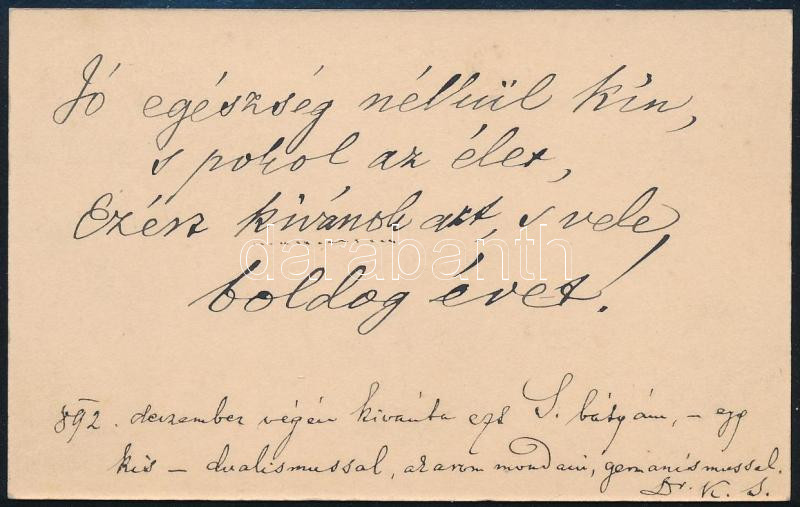 Jó egészség nélkül kín,
s pokol az élet,
Ezért kívánok azt, s vele
boldog évet!
darabanth
892. deczember végén kivánta ezt S. bátyám, – egy
kis – dualismussal, akarom mondani, germanismussal.
Dr. K. S.